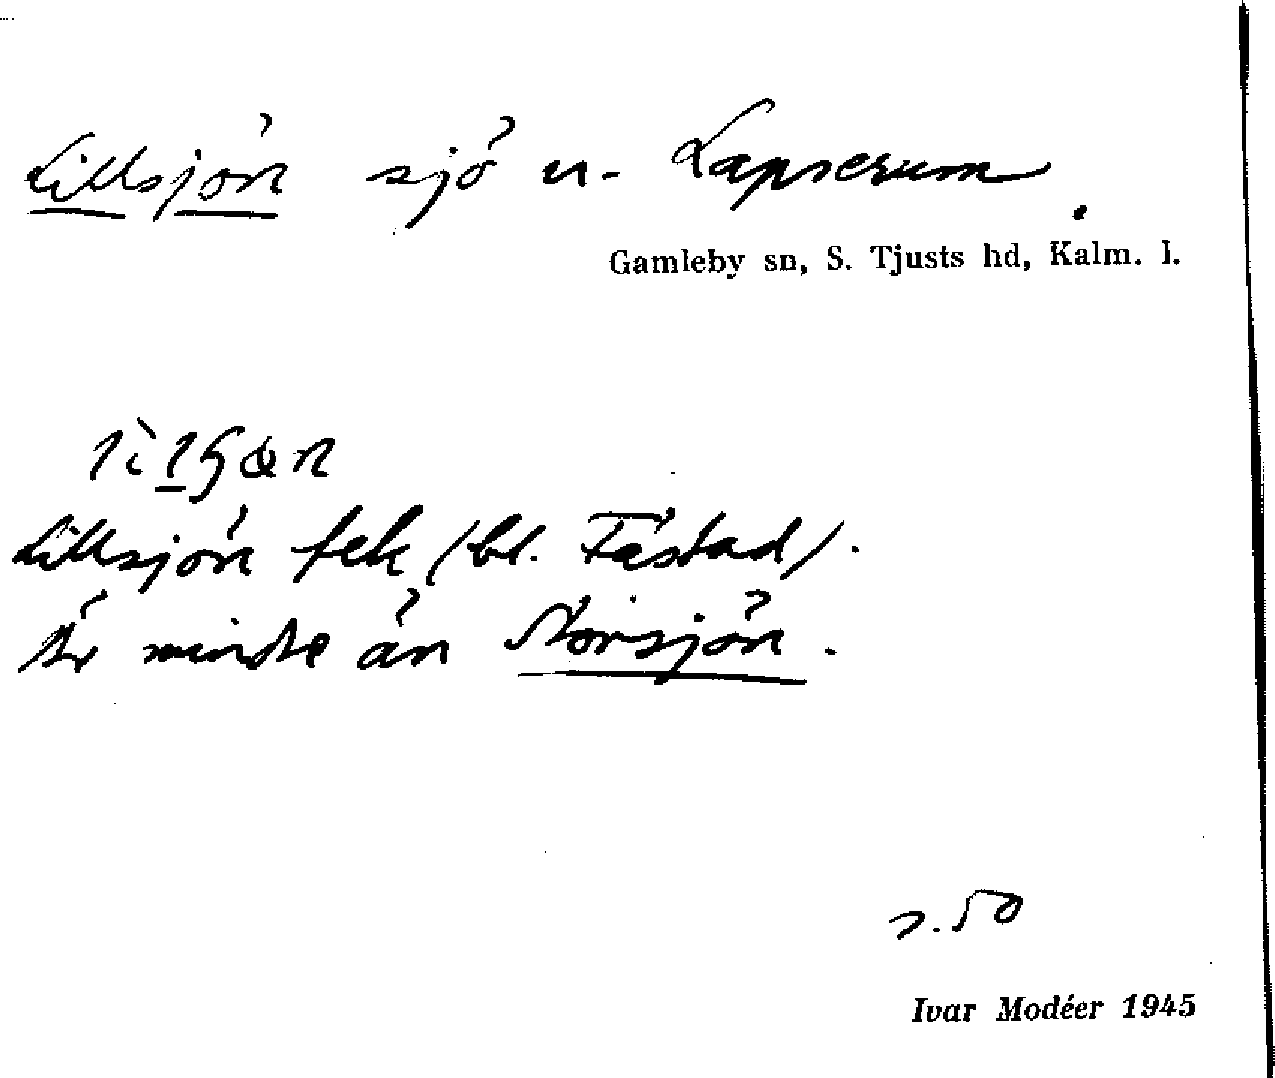 Lillsjön sjö u. Lapserum.
Gamleby sn, S. Tjusts hd, Kalm. l.
Lillsjön fek (bl. Fåstad).
Är mindre än Storsjön.
s. 50
Ivar Modéer 1945